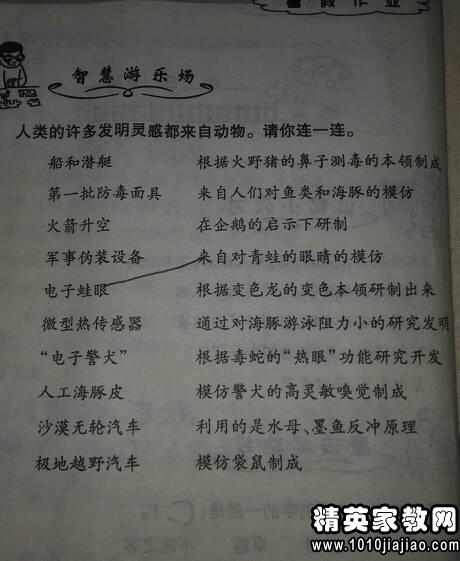 暑假作业
智慧游乐场
人类的许多发明灵感都来自动物。请你连一连。
船和潜艇 根据火野猪的鼻子测毒的本领制成
第一批防毒面具 来自人们对鱼类和海豚的模仿
火箭升空 在企鹅的启示下研制
军事伪装设备 来自对青蛙的眼睛的模仿
电子蛙眼 根据变色龙的变色本领研制出来
微型热传感器 通过对海豚游泳阻力小的研究发明
“电子警犬” 根据毒蛇的“热眼”功能研究开发
人工海豚皮 模仿警犬的高灵敏嗅觉制成
沙漠无轮汽车 利用的是水母、墨鱼反冲原理
极地越野汽车 模仿袋鼠制成
精英家教网
www.1010jiajiao.com